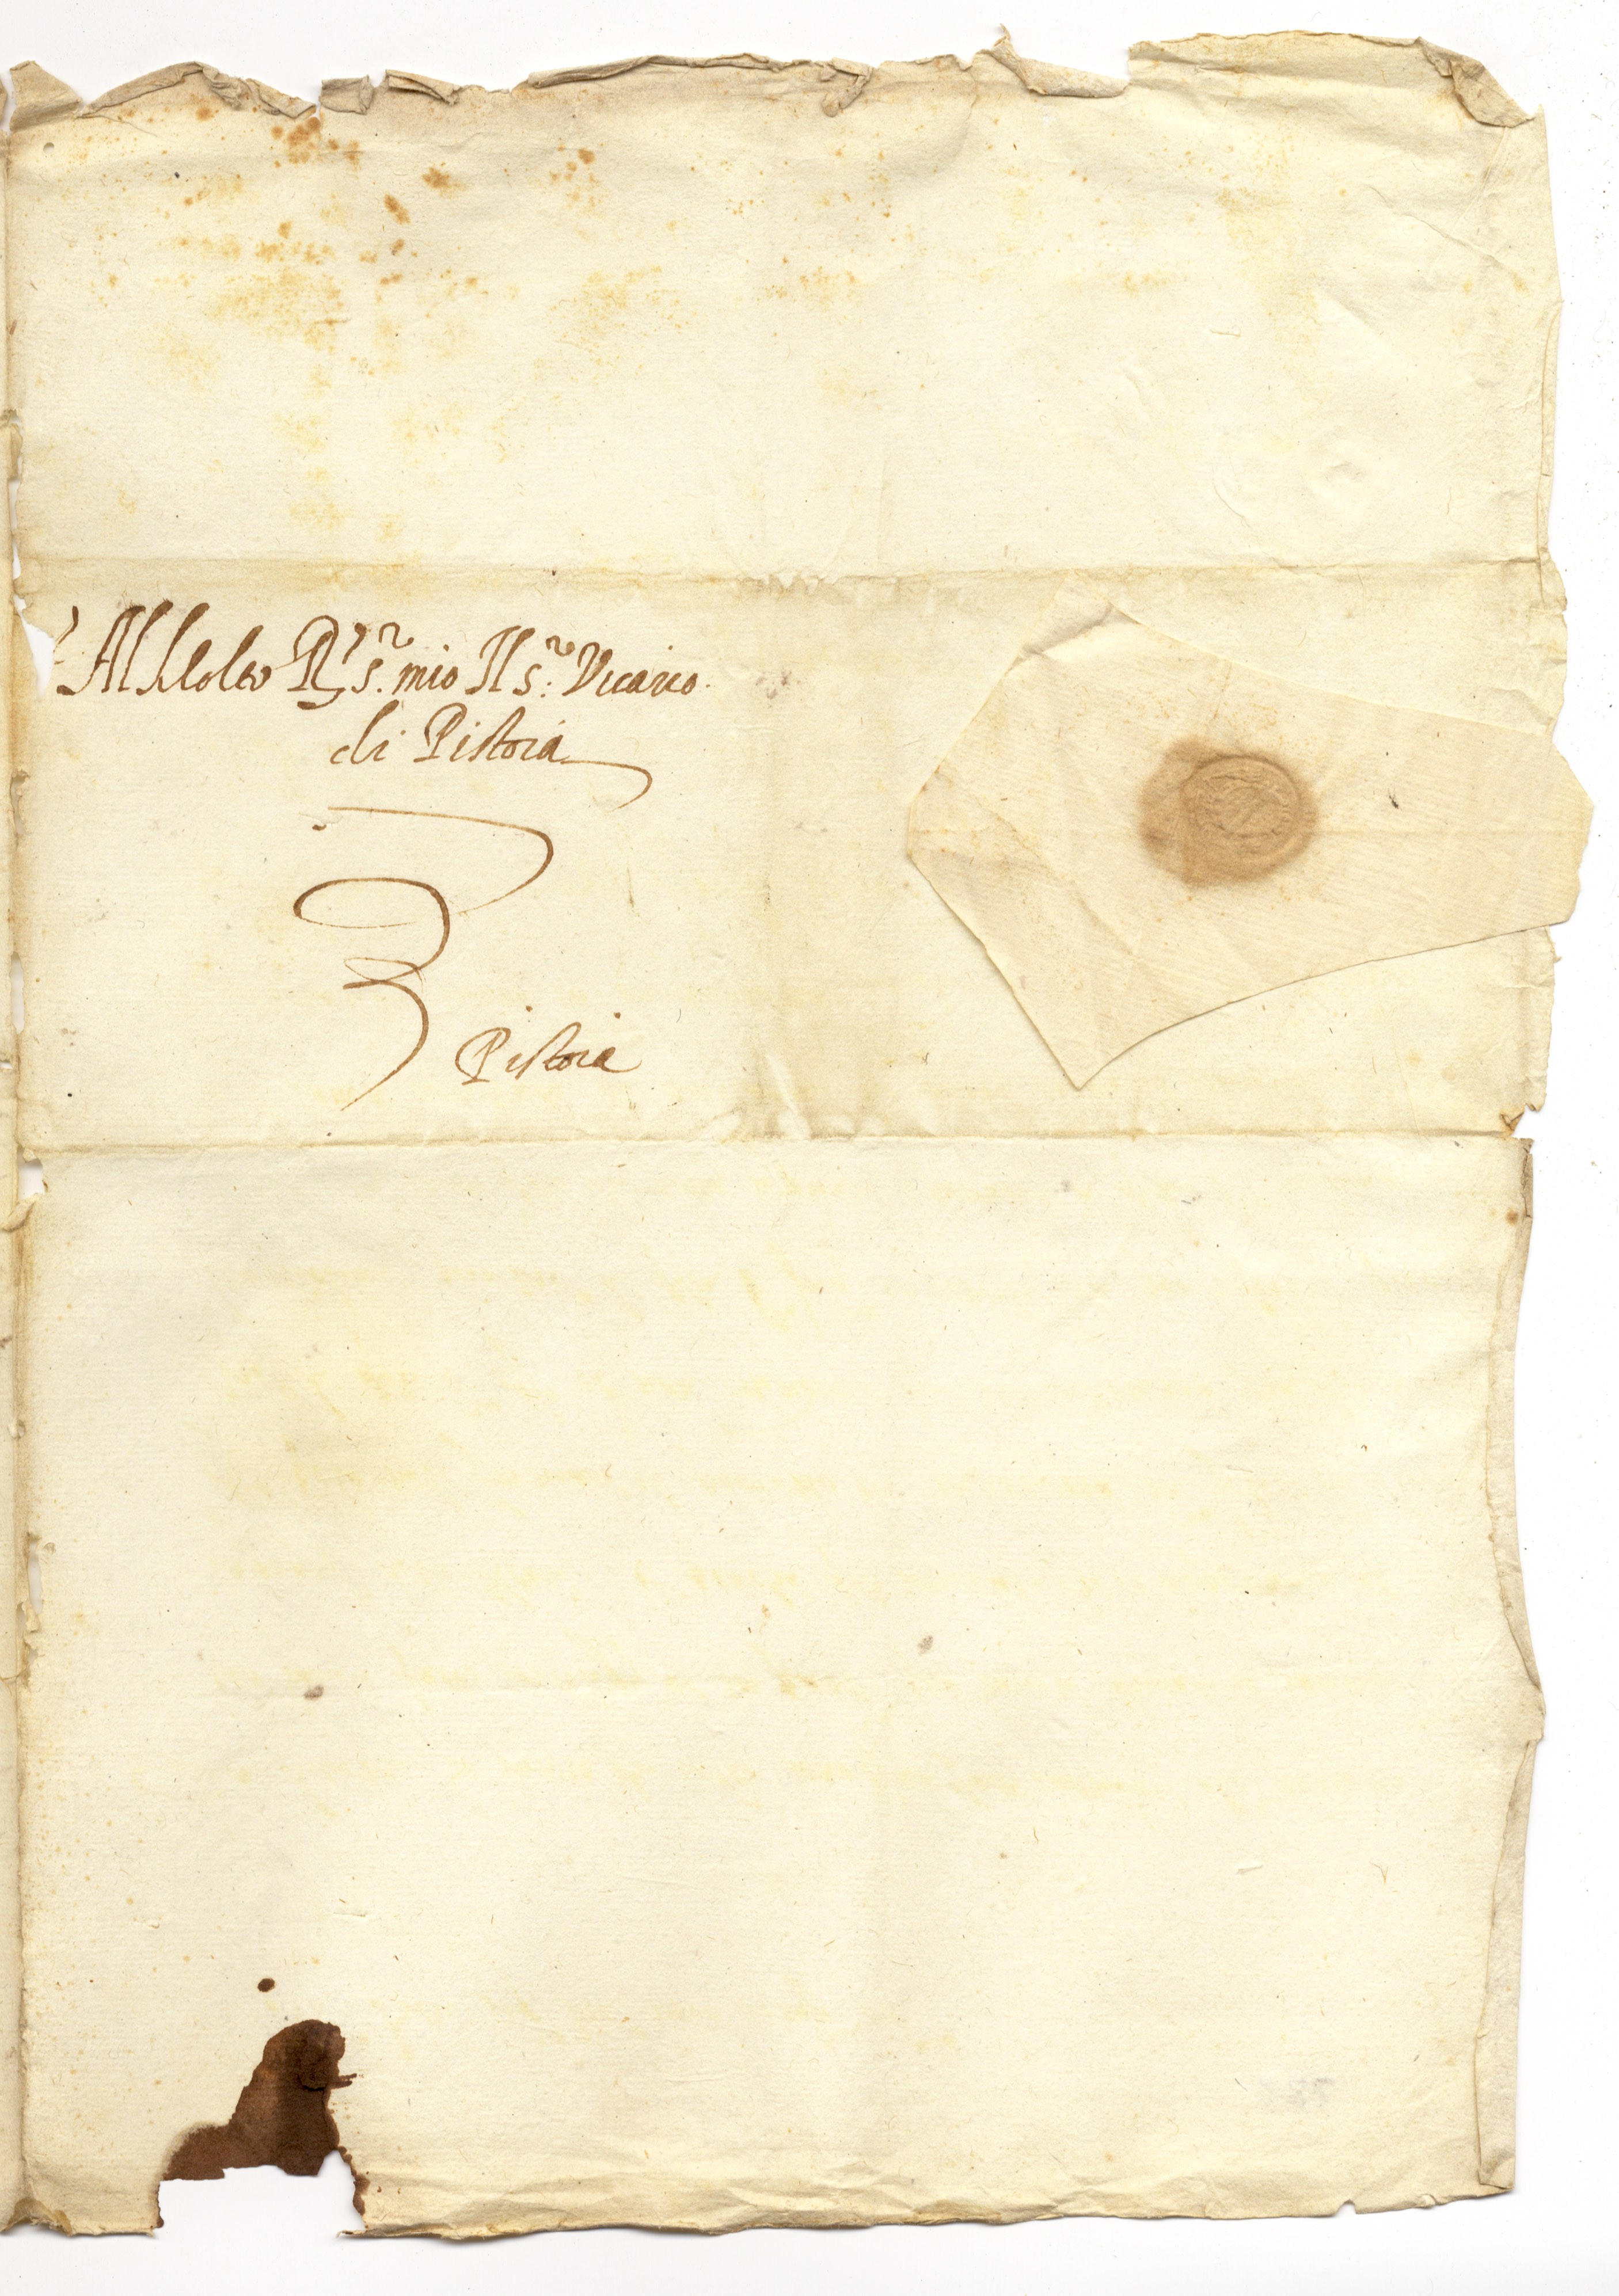 Al Molto R.^do S.^r mio Il S.^r Vicario
di Pistoia
Pistoia